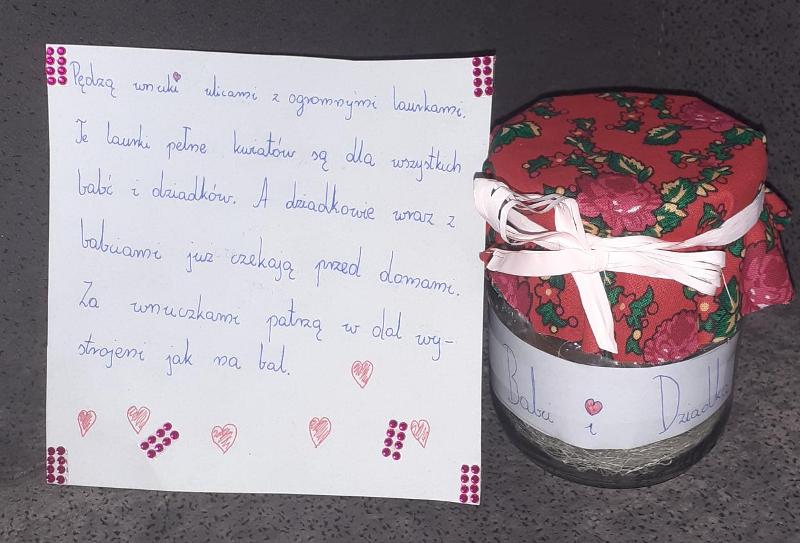 Pędzą wnuki ulicami z ogromnymi laurkami.
Te laurki pełne kwiatów są dla wszystkich
babć i dziadków. A dziadkowie wraz z
babciami już czekają przed domami.
Za wnuczkami patrzą w dal wy-
strojeni jak na bal.
Babci i Dziadka